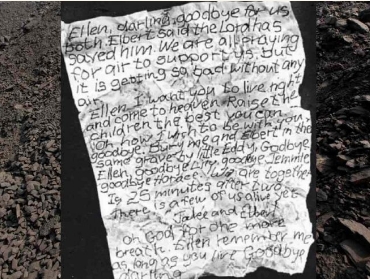 Ellen, darling, goodbye for us
both. Elbert said the Lord has
saved him. We are all praying
for air to support us, but
it is getting so bad without any
air.
Ellen I want you to live right
and come to heaven. Raise the
children the best you can.
Oh how I wish to be with you,
goodbye. Bury me and Elbert in the
same grave by little Eddy. Goodbye
Ellen, goodbye Lily, goodbye Jemmie
goodbye Horace. We are together
Is 25 minutes after two.
There is a few of us alive yet
Jake and Elbert
Oh God for one more
breath. Ellen remember me
as long as you live Goodbye
darling